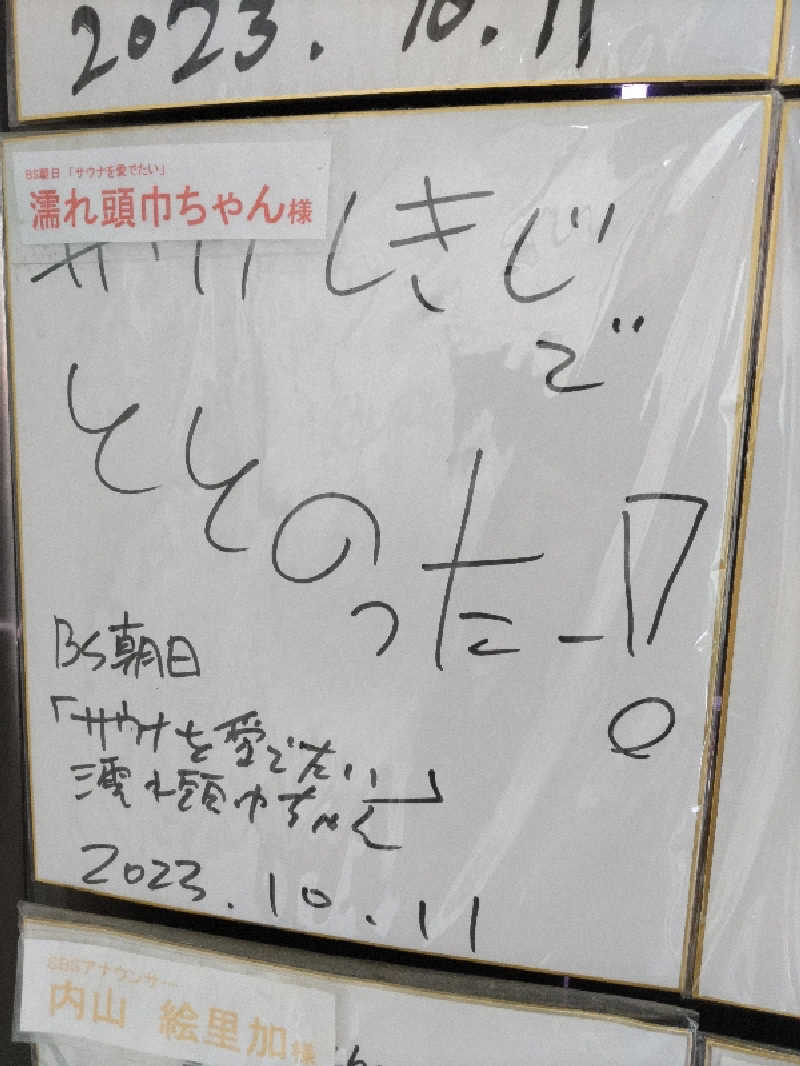 2023.10.11
BS朝日「サウナを愛でたい」
濡れ頭巾ちゃん様
サウナしきじ
で
ととのったー!
BS朝日
「サウナを愛でたい
濡れ頭巾ちゃん」
2023.10.11
SBSアナウンサー
内山 絵里加様